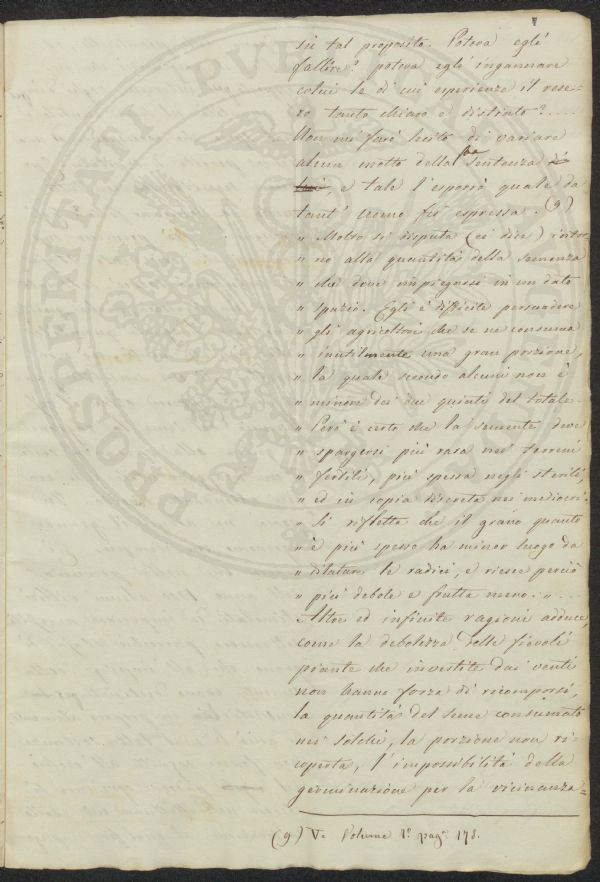 su tal proposito. Poteva egli
fallire? poteva egli ingannare
colui le di cui esperienze il rese=
ro tanto chiaro e distinto?....
Non mi farò lecito di variare
alcun motto della sua sentenza
, e tale l'esporrò quale da
tant' uomo fu espressa. (9)
" Molto si disputa (ei dice) intor=
" no alla quantità della semenza
" che deve impiegarsi in un dato
" spazio. Egli è difficile persuadere
" gli agricoltori che se ne consuma
" inutilmente una gran porzione,
" la quale secondo alcuni non è
" minore dei due quinti del totale.
" Però è certo che la semente deve
" spargersi più rara nei terreni
" fertili, più spessa negli sterili,
" ed in copia discreta nei mediocri.
" Si rifletta che il grano quanto
" è più spesso ha minor luogo da
" dilatare le radici, e riesce perciò
" più debole e frutta meno. " ....
Altre ed infinite ragioni adduce,
come la debolezza delle fievoli
piante che investite dai venti
non hanno forza di ricomporsi,
la quantità del seme consumato
nei solchi, la porzione non ri=
coperta, l'impossibilità della
germinazione per la vicinanza=
(9) Ve Volume 1º pagª 178.
PROSPERITATI PVBLICAE